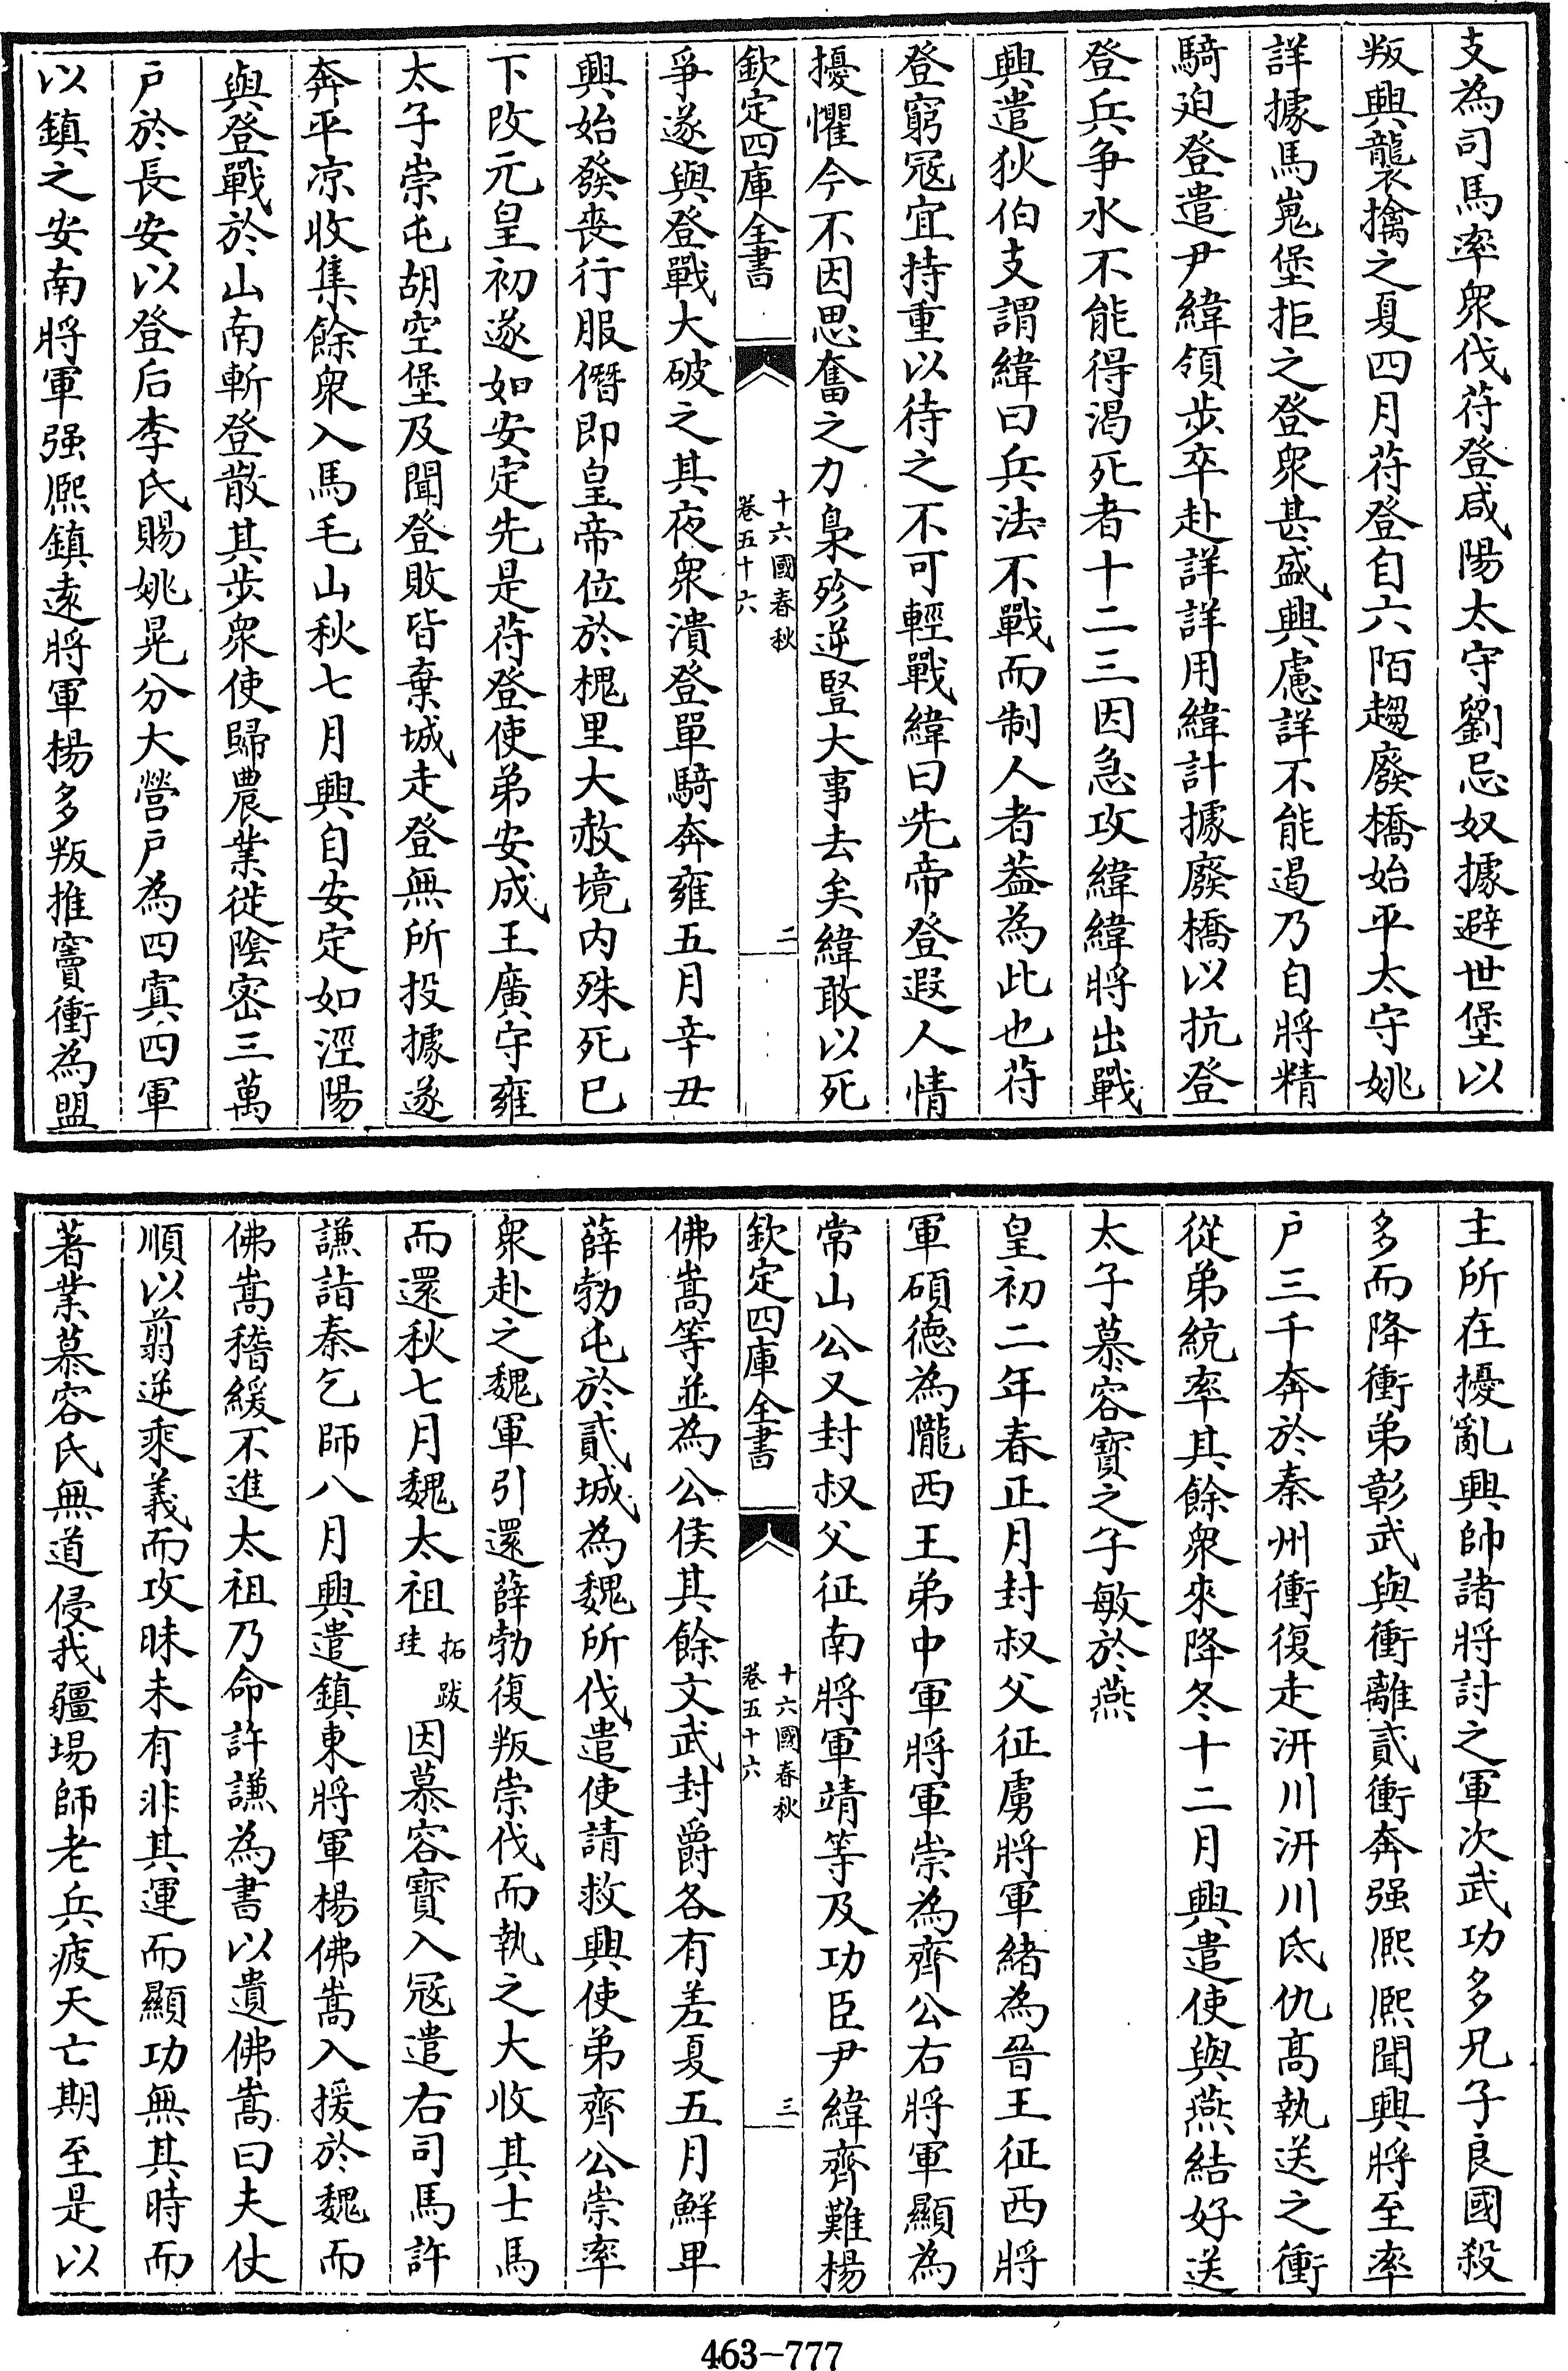 支為司馬率衆伐苻登咸陽太守劉忌奴據避世堡以
叛興襲擒之夏四月苻登自六陌趨廢橋始平太守姚
詳據馬嵬堡拒之登衆甚盛興慮詳不能遏乃自將精
騎迫登遣尹緯領步卒赴詳詳用緯計據廢橋以抗登
登兵争水不能得渴死者十二三因急攻緯緯將出戰
興遣狄伯支謂緯曰兵法不戰而制人者葢為此也苻
登窮寇宜持重以待之不可輕戰緯曰先帝登遐人情
擾懼今不因思奮之力梟殄逆豎大事去矣緯敢以死
欽定四庫全書
十六國春秋
卷五十六
二
爭遂與登戰大破之其夜衆潰登單騎奔雍五月辛丑
興始發喪行服僭即皇帝位於槐里大赦境内殊死已
下改元皇初遂如安定先是苻登使弟安成王廣守雍
太子崇屯胡空堡及聞登敗皆棄城走登無所投據遂
奔平凉收集餘衆入馬毛山秋七月興自安定如涇陽
與登戰於山南斬登散其步衆使歸農業徙陰密三萬
户於長安以登后李氏賜姚晃分大營户為四寘四軍
以鎮之安南將軍强熈鎮遠將軍楊多叛推竇衝為盟
主所在擾亂興帥諸將討之軍次武功多兄子良國殺
多而降衝弟彰武與衝離貳衝奔强熈熈聞興將至率
户三千奔於秦州衝復走汧川汧川氐仇高執送之衝
從弟統率其餘衆來降冬十二月興遣使與燕結好送
太子慕容寶之子敏於燕
皇初二年春正月封叔父征虜將軍緒為晉王征西將
軍碩徳為隴西王弟中軍將軍崇為齊公右將軍顯為
常山公又封叔父征南將軍靖等及功臣尹緯齊難楊
欽定四庫全書
十六國春秋
卷五十六
三
佛嵩等並為公侯其餘文武封爵各有差夏五月鮮卑
薛勃屯於貳城為魏所伐遣使請救興使弟齊公崇率
衆赴之魏軍引還薛勃復叛崇伐而執之大收其士馬
而還秋七月魏太祖拓跋珪因慕容寶入寇遣右司馬許
謙詣秦乞師八月興遣鎮東將軍楊佛嵩入援於魏而
佛嵩稽緩不進太祖乃命許謙為書以遺佛嵩曰夫仗
順以翦逆乘義而攻昧未有非其運而顯功無其時而
著業慕容氏無道侵我疆埸師老兵疲天亡期至是以
463-777